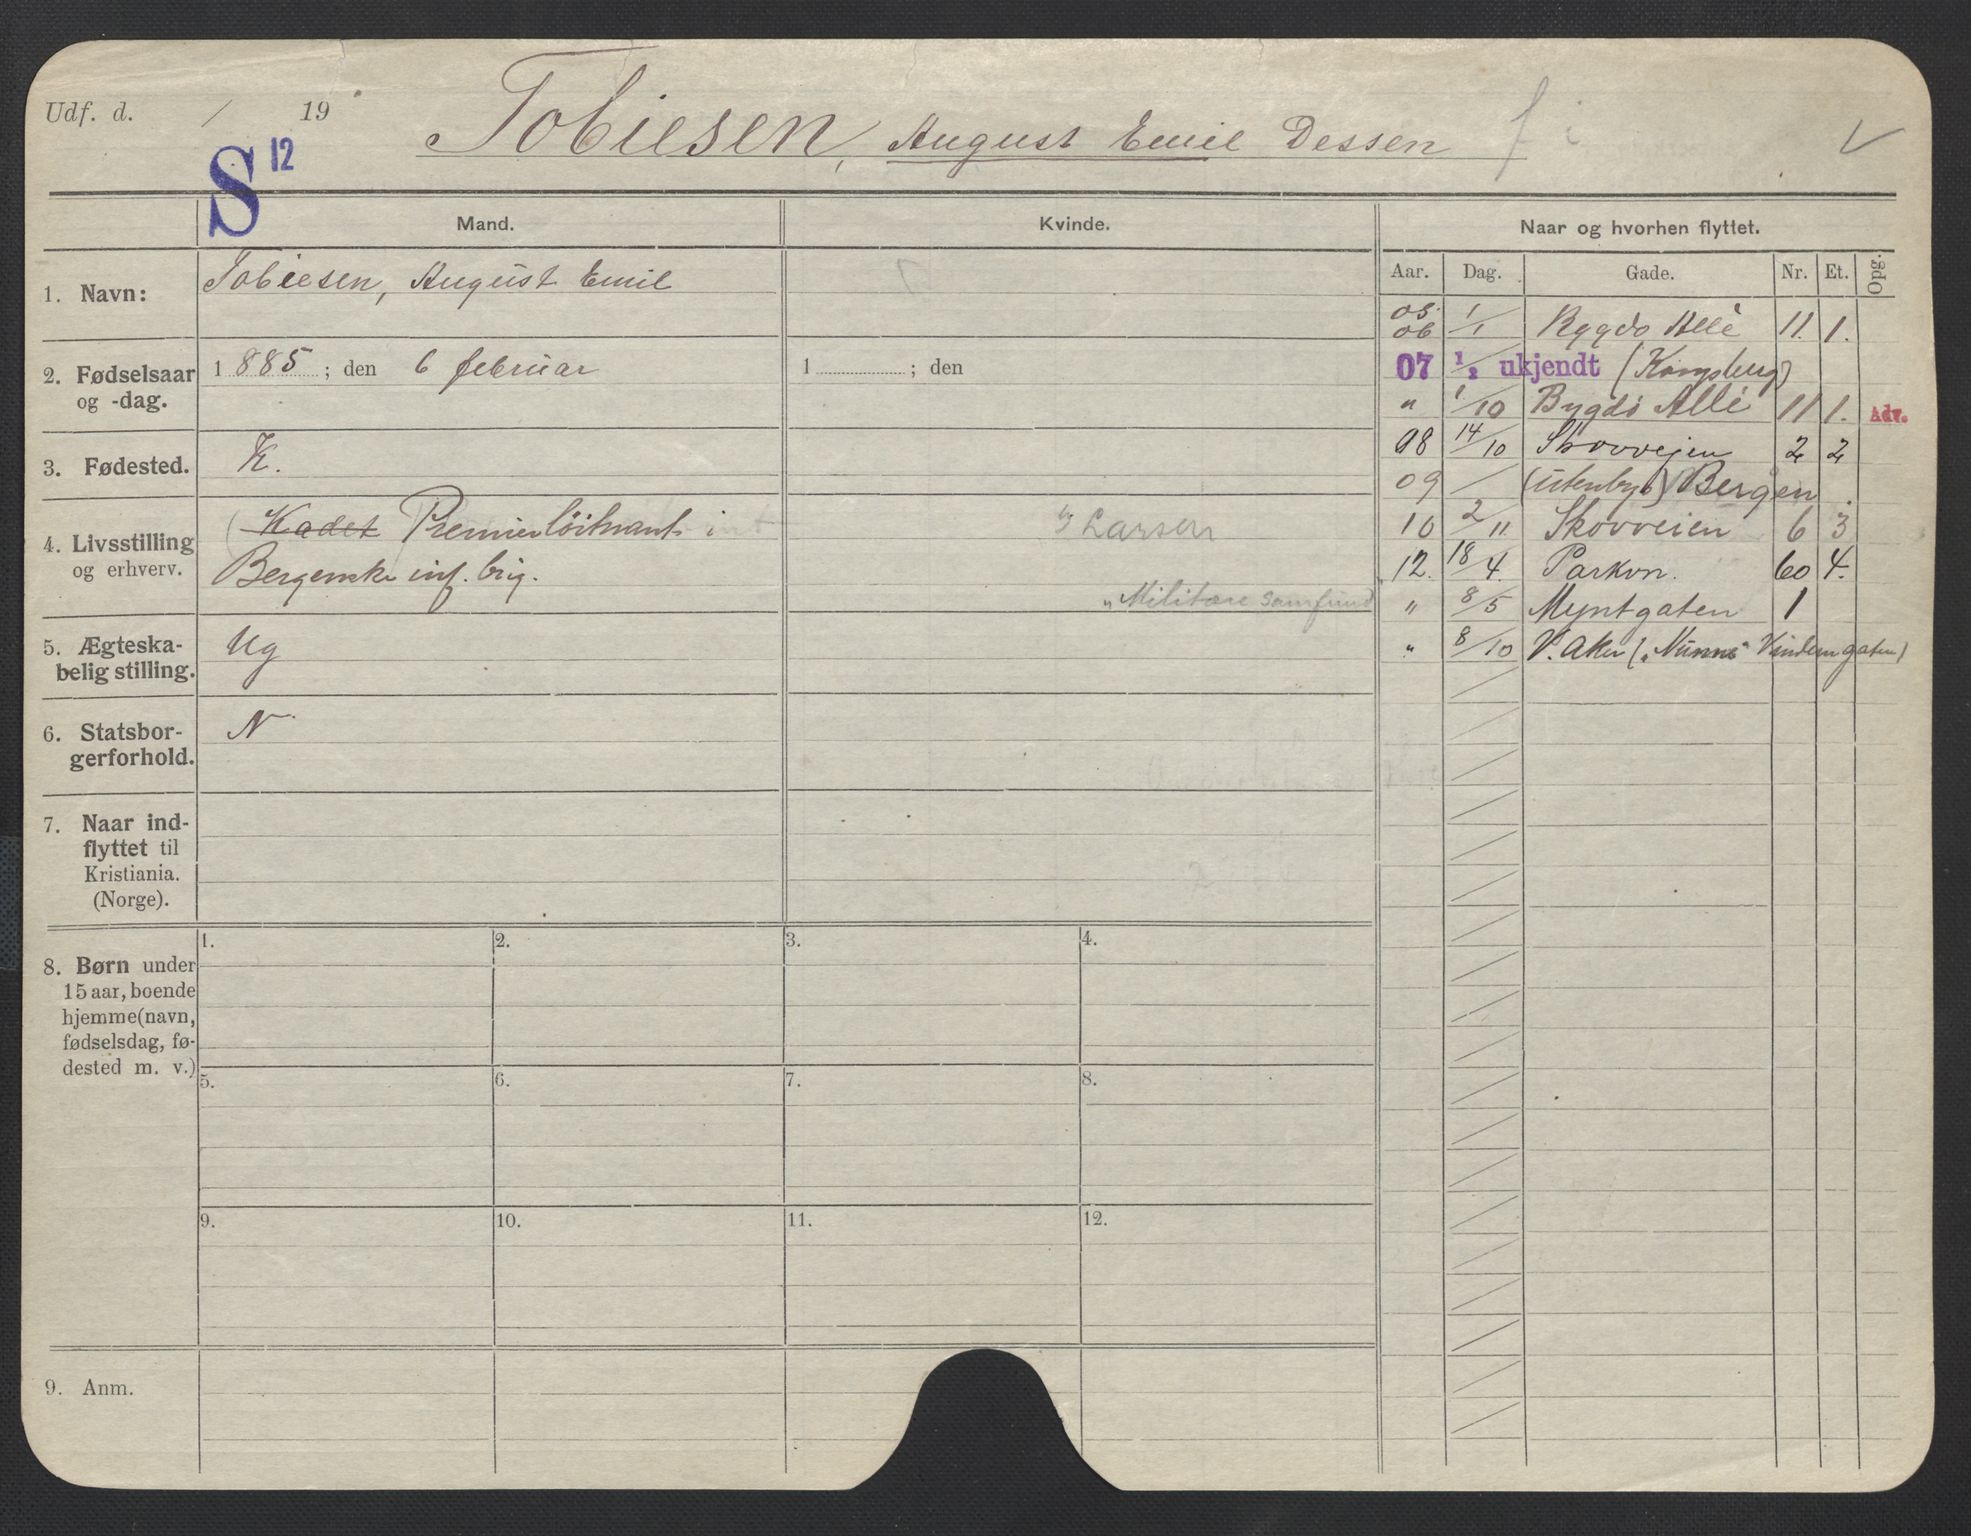 Udf. d. / 19
Tobiesen, August Emil Dessen
S 12
Mand.
Kvinde.
Naar og hvorhen flyttet.
Aar. Dag. Gade. Nr. Et. Opg.
1. Navn: Tobiesen, August Emil
2. Fødselsaar og -dag.
1885; den 6 februar
1 ; den
3. Fødested. K.
4. Livsstilling og erhverv.
(Kadet Premierløitnant i
Bergenske inf. brig.
Larsen
"Militære Samfund
5. Ægteska-
belig stilling.
Ug
6. Statsbor-
gerforhold.
N
7. Naar ind-
flyttet til
Kristiania.
(Norge).
8. Børn under
15 aar, boende
hjemme (navn,
fødselsdag, fø-
dested m. v.)
1. 2. 3. 4.
5. 6. 7. 8.
9. 10. 11. 12.
9. Anm.
05.
06 1/1 Bygdø Allè 11. 1.
07 1/2 ukjendt (Kongsberg)
" 1/10 Bygdö Allé 11 1. Adv.
08 14/10 Skovvejen 2 2
09 / (utenbys) Bergen.
10 2/11 Skovveien 6 3
12. 18/4. Parkvn. 60 4.
" 8/5 Myntgaten 1
" 8/10 V. Aker ("Nünne" Vinderngaten)